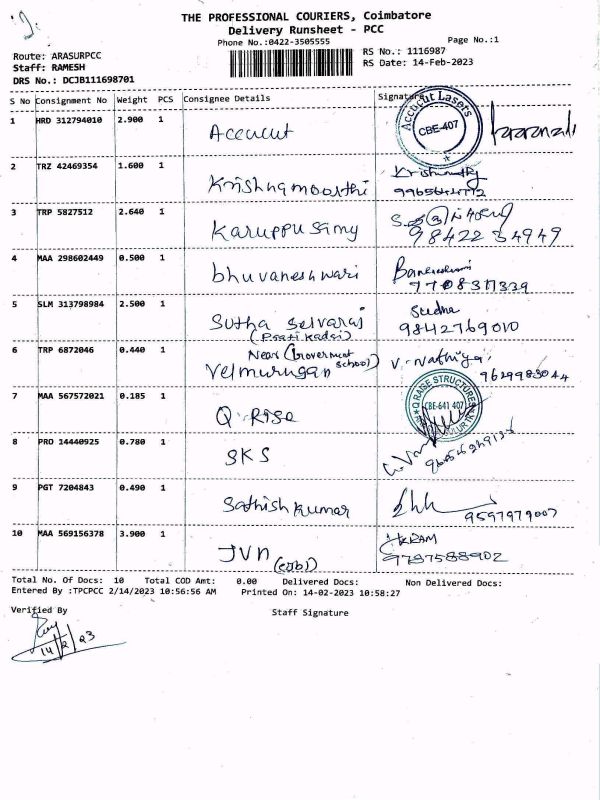 THE PROFESSIONAL COURIERS, Coimbatore
Delivery Runsheet - PCC
Phone No.:0422-3505555
Page No.:1
Route: ARASURPCC
RS No.: 1116987
Staff: RAMESH
RS Date: 14-Feb-2023
DRS No.: DCJB111698701
S No Consignment No Weight PCS Consignee Details Signature
1 HRD 312794010 2.900 1
Accucut
Accucut Lasers
CBE-407
2 TRZ 42469354 1.600 1
Krishnamoorthi
3 TRP 5827512 2.640 1
Karuppusamy
98422 34949
4 MAA 298602449 0.500 1
bhuvaneshwari
5 SLM 313798984 2.500 1
Sutha Selvaraj
9842769010
6 TRP 6872046 0.440 1
Near (Government
school)
Velmurugan
V. Nathiya
7 MAA 567572021 0.185 1
Q-Rise
Q RAISE STRUCTURES
CBE-641 407
8 PRD 14440925 0.780 1
SKS
9 PGT 7204843 0.490 1
Sathish kumar
9597979007
10 MAA 569156378 3.900 1
JVN
9787588902
Total No. Of Docs: 10 Total COD Amt: 0.00 Delivered Docs: Non Delivered Docs:
Entered By :TPCPCC 2/14/2023 10:56:56 AM Printed On: 14-02-2023 10:58:27
Verified By
Staff Signature
14/2/23